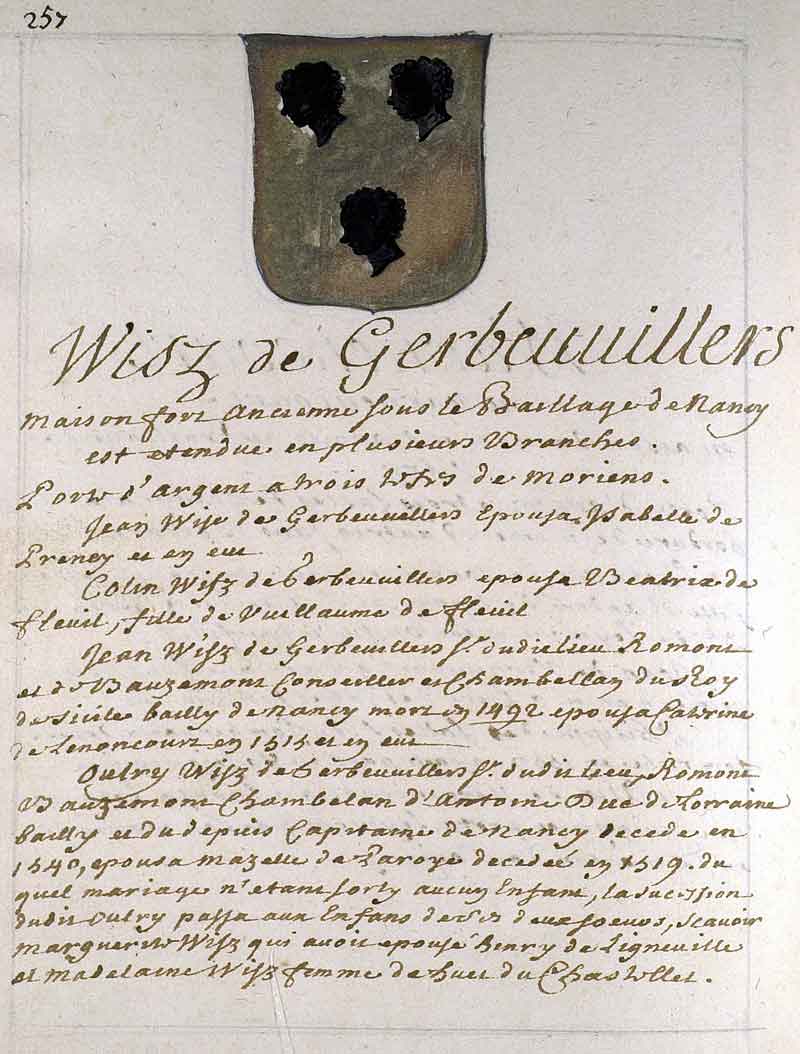 257
Wisz de Gerbeuuillers
maison fort Ancienne sous le Baillage de Nancy
est etendue en plusieurs Branches.
Porte d'argent a trois testes de moriens.
Jean Wisz de Gerbeuuillers Epousa Isabelle de
Preney et en eut
Colin Wisz de Gerbeuuillers epousa Beatrix de
fleuil, fille de Vuillaume de fleuil
Jean Wisz de Gerbeuuillers Sr. dudit lieu Romont
et de Bauzemont Conseiller et Chambellan du Roy
de Sicile bailly de Nancy mort en 1492 epousa Catrine
de Lenoncourt en 1515 et en eut
Oulry Wisz de Gerbeuuillers Sr. dudit lieu, Romont
Bauzemont Chambelan d'Antoine Duc de Lorraine
bailly et du depuis Capitaine de Nancy decede en
1540, epousa Mazelle de Paroye decedeé en 1519. du
quel mariage n'etant sorty aucun Enfant, la sucession
dudit Oulry passa aux Enfans de ses deux soeurs, scavoir
marguerite Wisz qui avoit epousé henry de Ligneuille
et madelaine Wisz femme de huet du Chastellet.